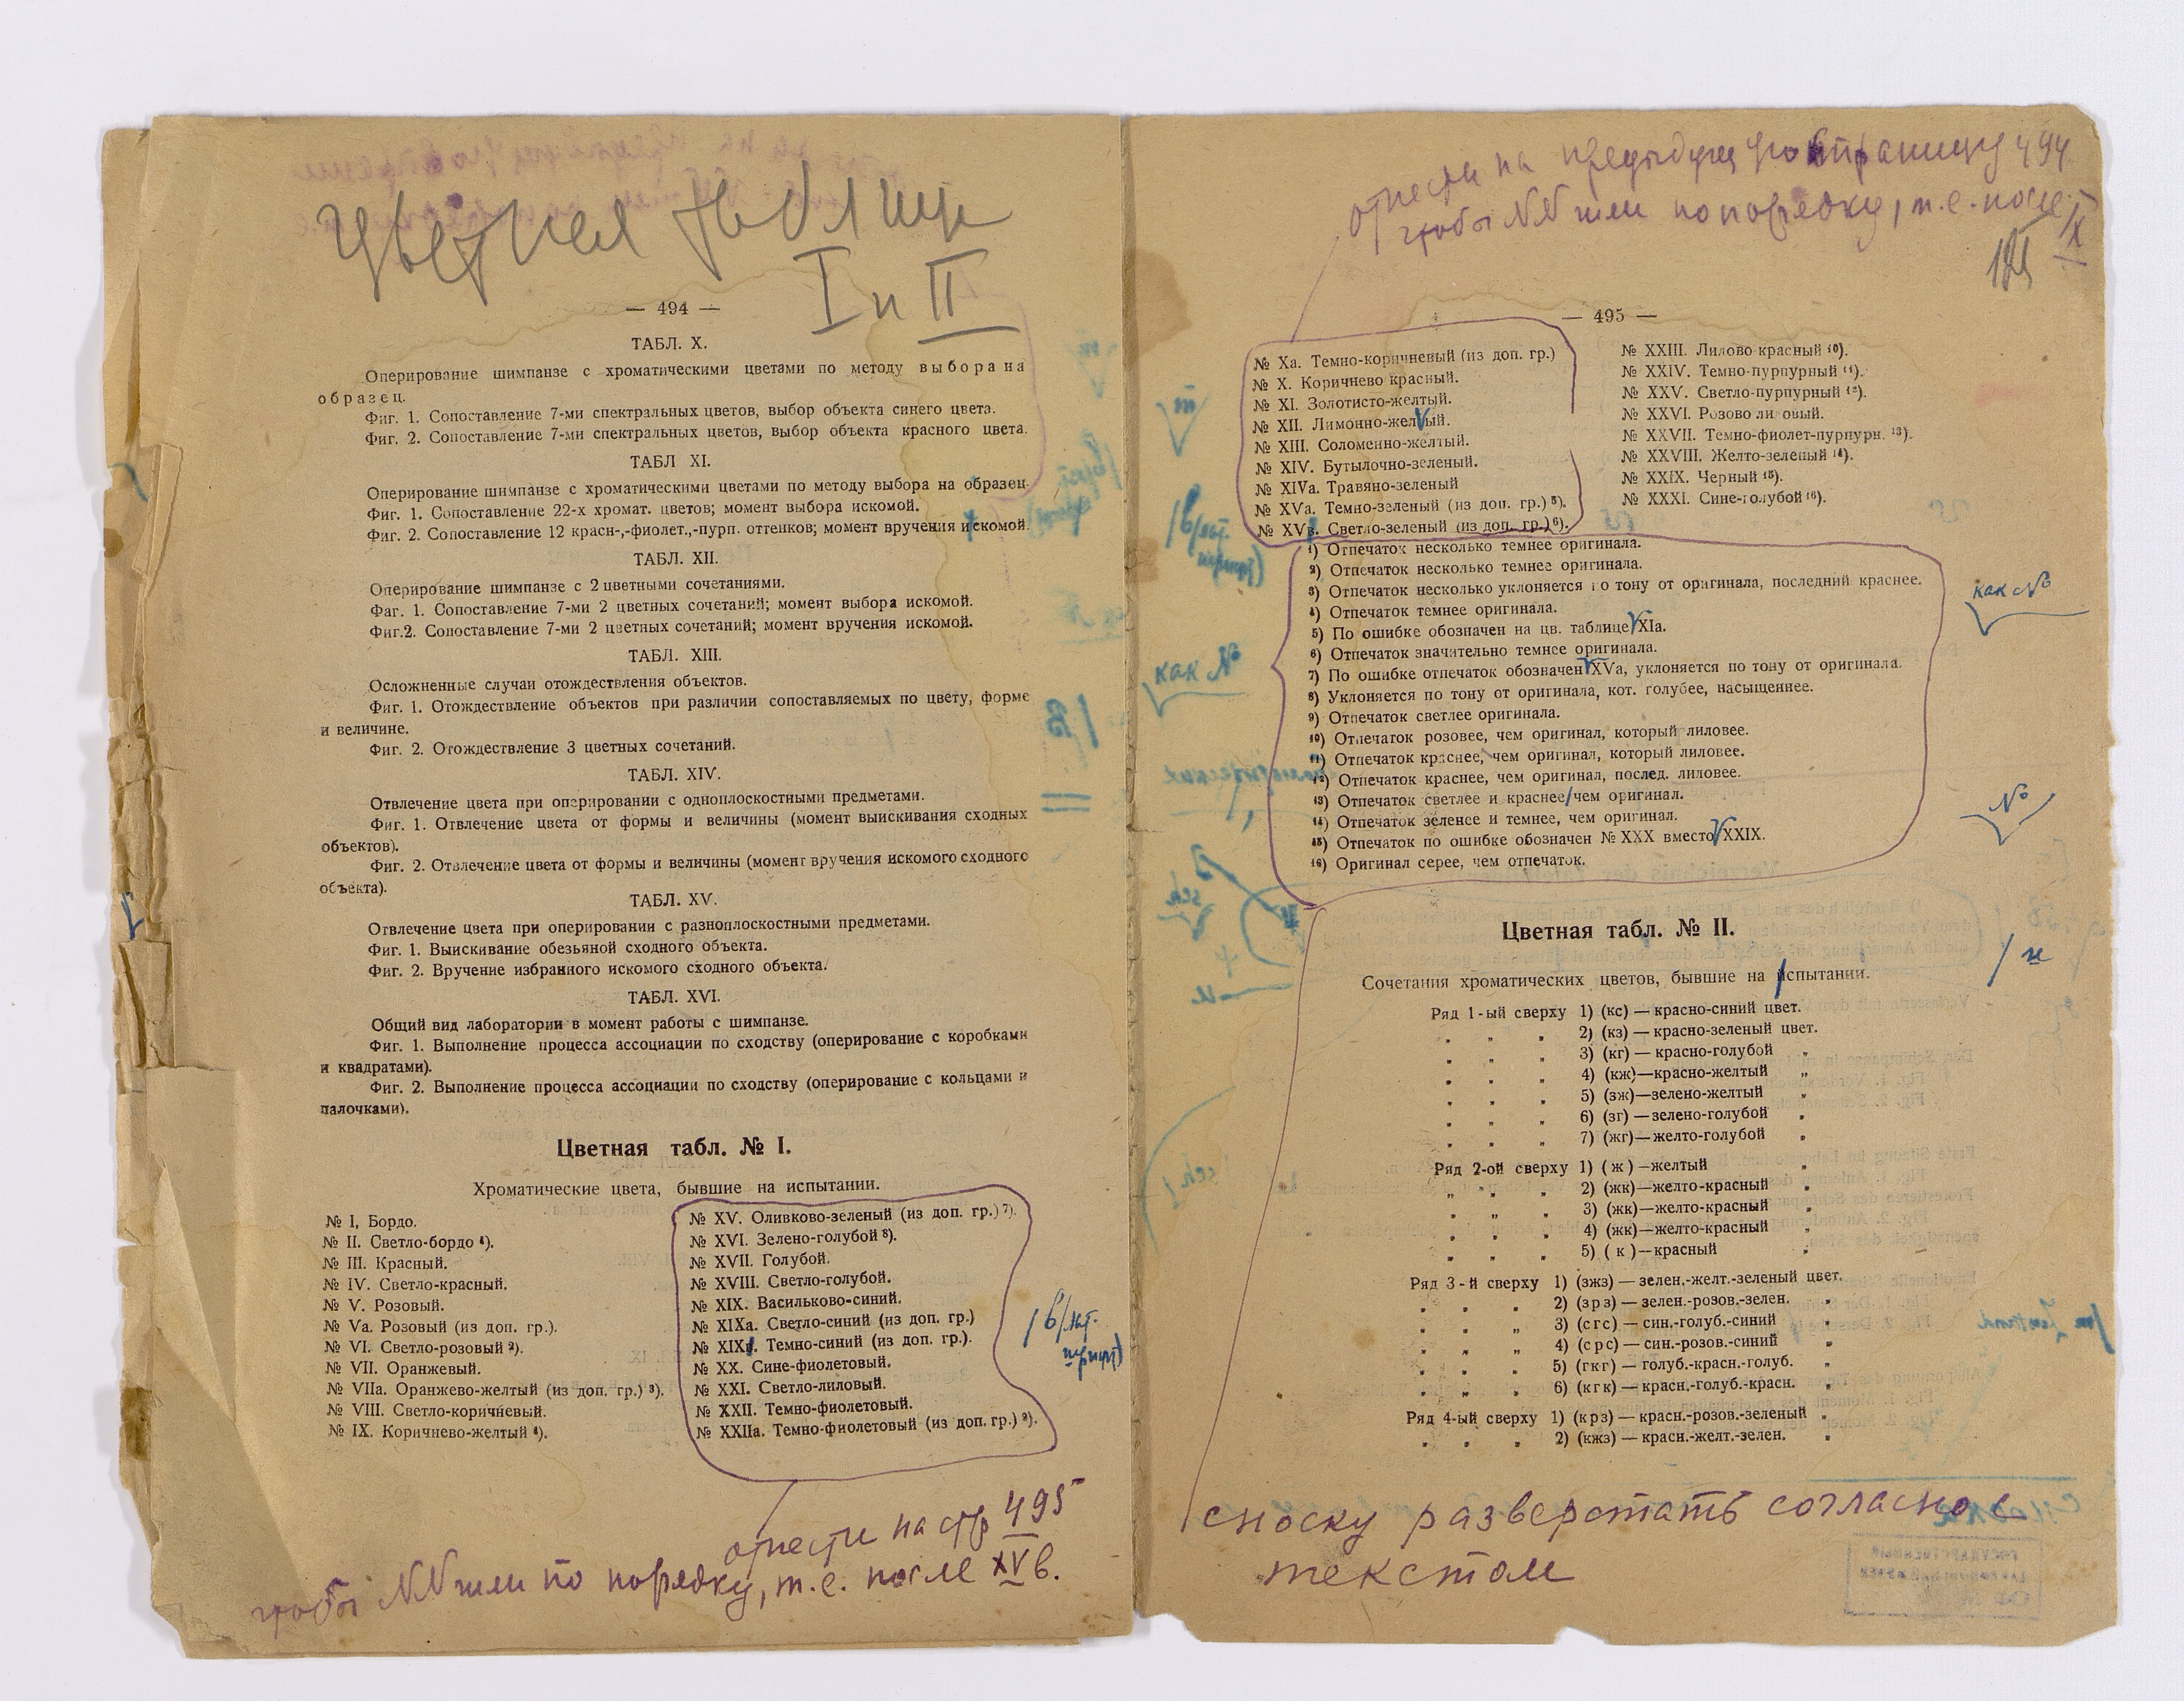 Цветная таблица
I и II
— 494 —
ТАБЛ. X.
Оперирование шимпанзе с хроматическими цветами по методу выбора на
образец.
Фиг. 1. Сопоставление 7-ми спектральных цветов, выбор объекта синего цвета.
Фиг. 2. Сопоставление 7-ми спектральных цветов, выбор объекта красного цвета.
ТАБЛ XI.
Оперирование шимпанзе с хроматическими цветами по методу выбора на образец.
Фиг. 1. Сопоставление 22-х хромат. цветов; момент выбора искомой.
Фиг. 2. Сопоставление 12 красн-,-фиолет.,-пурп. оттенков; момент вручения искомой.
ТАБЛ. XII.
Оперирование шимпанзе с 2 цветными сочетаниями.
Фаг. 1. Сопоставление 7-ми 2 цветных сочетаний; момент выбора искомой.
Фиг.2. Сопоставление 7-ми 2 цветных сочетаний; момент вручения искомой.
ТАБЛ. XIII.
Осложненные случаи отождествления объектов.
Фиг. 1. Отождествление объектов при различии сопоставляемых по цвету, форме
и величине.
Фиг. 2. Отождествление 3 цветных сочетаний.
ТАБЛ. XIV.
Отвлечение цвета при оперировании с одноплоскостными предметами.
Фиг. 1. Отвлечение цвета от формы и величины (момент выискивания сходных
объектов).
Фиг. 2. Отвлечение цвета от формы и величины (момент вручения искомого сходного
объекта).
ТАБЛ. XV.
Отвлечение цвета при оперировании с разноплоскостными предметами.
Фиг. 1. Выискивание обезьяной сходного объекта.
Фиг. 2. Вручение избранного искомого сходного объекта.
ТАБЛ. XVI.
Общий вид лаборатории в момент работы с шимпанзе.
Фиг. 1. Выполнение процесса ассоциации по сходству (оперирование с коробками
и квадратами).
Фиг. 2. Выполнение процесса ассоциации по сходству (оперирование с кольцами и
палочками).
Цветная табл. № I.
Хроматические цвета, бывшие на испытании.
№ I, Бордо.
№ II. Светло-бордо ¹).
№ III. Красный.
№ IV. Светло-красный.
№ V. Розовый.
№ Va. Розовый (из доп. гр.).
№ VI. Светло-розовый ²).
№ VII. Оранжевый.
№ VIIa. Оранжево-желтый (из доп. гр.) ³).
№ VIII. Светло-коричневый.
№ IX. Коричнево-желтый ⁴).
№ XV. Оливково-зеленый (из доп. гр.) ⁷).
№ XVI. Зелено-голубой ⁸).
№ XVII. Голубой.
№ XVIII. Светло-голубой.
№ XIX. Васильково-синий.
№ XIXa. Светло-синий (из доп. гр.)
№ XIX. Темно-синий (из доп. гр.).
№ XX. Сине-фиолетовый.
№ XXI. Светло-лиловый.
№ XXII. Темно-фиолетовый.
№ XXIIa. Темно-фиолетовый (из доп. гр.) ⁹).
/ в/лат.
отнести на стр 495
чтобы №№ шли по порядку, т.е. после XVв.
отнести на предыдущую страницу 494
чтобы №№ шли по порядку, т.е. после
IX
— 495 —
№ Xa. Темно-коричневый (из доп. гр.)
№ X. Коричнево красный.
№ XI. Золотисто-желтый.
№ XII. Лимонно-желтый.
№ XIII. Соломенно-желтый.
№ XIV. Бутылочно-зеленый.
№ XIVa. Травяно-зеленый
№ XVa. Темно-зеленый (из доп. гр.) ⁵).
№ XVв. Светло-зеленый (из доп. гр.) ⁶).
№ XXIII. Лилово-красный ¹⁰).
№ XXIV. Темно-пурпурный ¹¹).
№ XXV. Светло-пурпурный ¹²).
№ XXVI. Розово лиловый.
№ XXVII. Темно-фиолет-пурпурн. ¹³).
№ XXVIII. Желто-зеленый ¹⁴).
№ XXIX. Черный ¹⁵).
№ XXXI. Сине-голубой ¹⁶).
¹) Отпечаток несколько темнее оригинала.
²) Отпечаток несколько темнее оригинала.
³) Отпечаток несколько уклоняется по тону от оригинала, последний краснее.
⁴) Отпечаток темнее оригинала.
⁵) По ошибке обозначен на цв. таблице XIa.
⁶) Отпечаток значительно темнее оригинала.
⁷) По ошибке отпечаток обозначен XVa, уклоняется по тону от оригинала.
⁸) Уклоняется по тону от оригинала, кот. голубее, насыщеннее.
⁹) Отпечаток светлее оригинала.
¹⁰) Отпечаток розовее, чем оригинал, который лиловее.
¹¹) Отпечаток краснее, чем оригинал, который лиловее.
¹²) Отпечаток краснее, чем оригинал, послед. лиловее.
¹³) Отпечаток светлее и краснее чем оригинал.
¹⁴) Отпечаток зеленее и темнее, чем оригинал.
¹⁵) Отпечаток по ошибке обозначен № XXX вместо XXIX.
¹⁶) Оригинал серее, чем отпечаток.
как №
№
Цветная табл. № II.
/ и
Сочетания хроматических цветов, бывшие на испытании.
Ряд 1-ый сверху 1) (кс) — красно-синий цвет.
„ „ „ 2) (кз) — красно-зеленый цвет.
„ „ „ 3) (кг) — красно-голубой „
„ „ „ 4) (кж)—красно-желтый „
„ „ „ 5) (зж)—зелено-желтый „
„ „ „ 6) (зг) — зелено-голубой „
„ „ „ 7) (жг)—желто-голубой „
Ряд 2-ой сверху 1) (ж) —желтый „
„ „ „ 2) (жк)—желто-красный „
„ „ „ 3) (жк)—желто-красный „
„ „ „ 4) (жк)—желто-красный „
„ „ „ 5) (к)—красный „
Ряд 3-й сверху 1) (зжз) — зелен.-желт.-зеленый цвет.
„ „ „ 2) (зрз) — зелен.-розов.-зелен. „
„ „ „ 3) (сгс) — син.-голуб.-синий „
„ „ „ 4) (срс) — син.-розов.-синий „
„ „ „ 5) (гкг) — голуб.-красн.-голуб. „
„ „ „ 6) (кгк) — красн.-голуб.-красн. „
Ряд 4-ый сверху 1) (крз) — красн.-розов.-зеленый „
„ „ „ 2) (кжз) — красн.-желт.-зелен. „
сноску разверстать согласно с
текстом